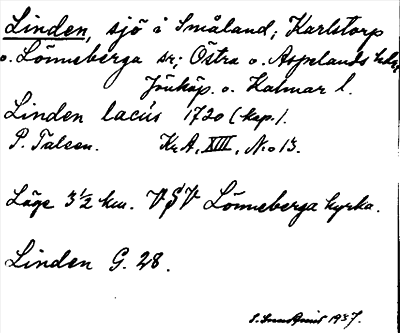 Linden, sjö i Småland; Karlstorp
o. Lönneberga sr; Östra o. Aspelands hdr,
Jönköp. o. Kalmar l.
Linden lacús 1720 (kop.).
P. Talsen. KrA, XIII, No 13.
Läge 3½ km. VSV Lönneberga kyrka.
Linden G. 28.
1937.